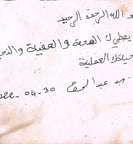 الله الرحمن الرحيم
يعطيك الصحة و العافية و النجا
حياتك العملية
عبد
2022-04-30